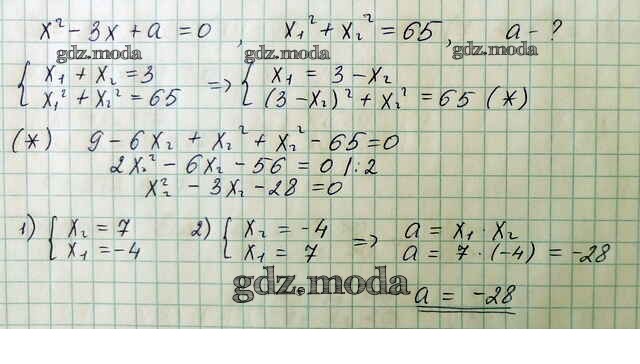 x² - 3x + a = 0 , x₁² + x₂² = 65 , a - ?
gdz.moda gdz.moda gdz.moda
{ x₁ + x₂ = 3 => { x₁ = 3 - x₂
x₁² + x₂² = 65 (3 - x₂)² + x₂² = 65 (*)
(*) 9 - 6x₂ + x₂² + x₂² - 65 = 0
2x₂² - 6x₂ - 56 = 0 |:2
x₂² - 3x₂ - 28 = 0
1) { x₂ = 7 2) { x₂ = -4 => a = x₁ · x₂
x₁ = -4 x₁ = 7 a = 7 · (-4) = -28
gdz.moda
a = -28